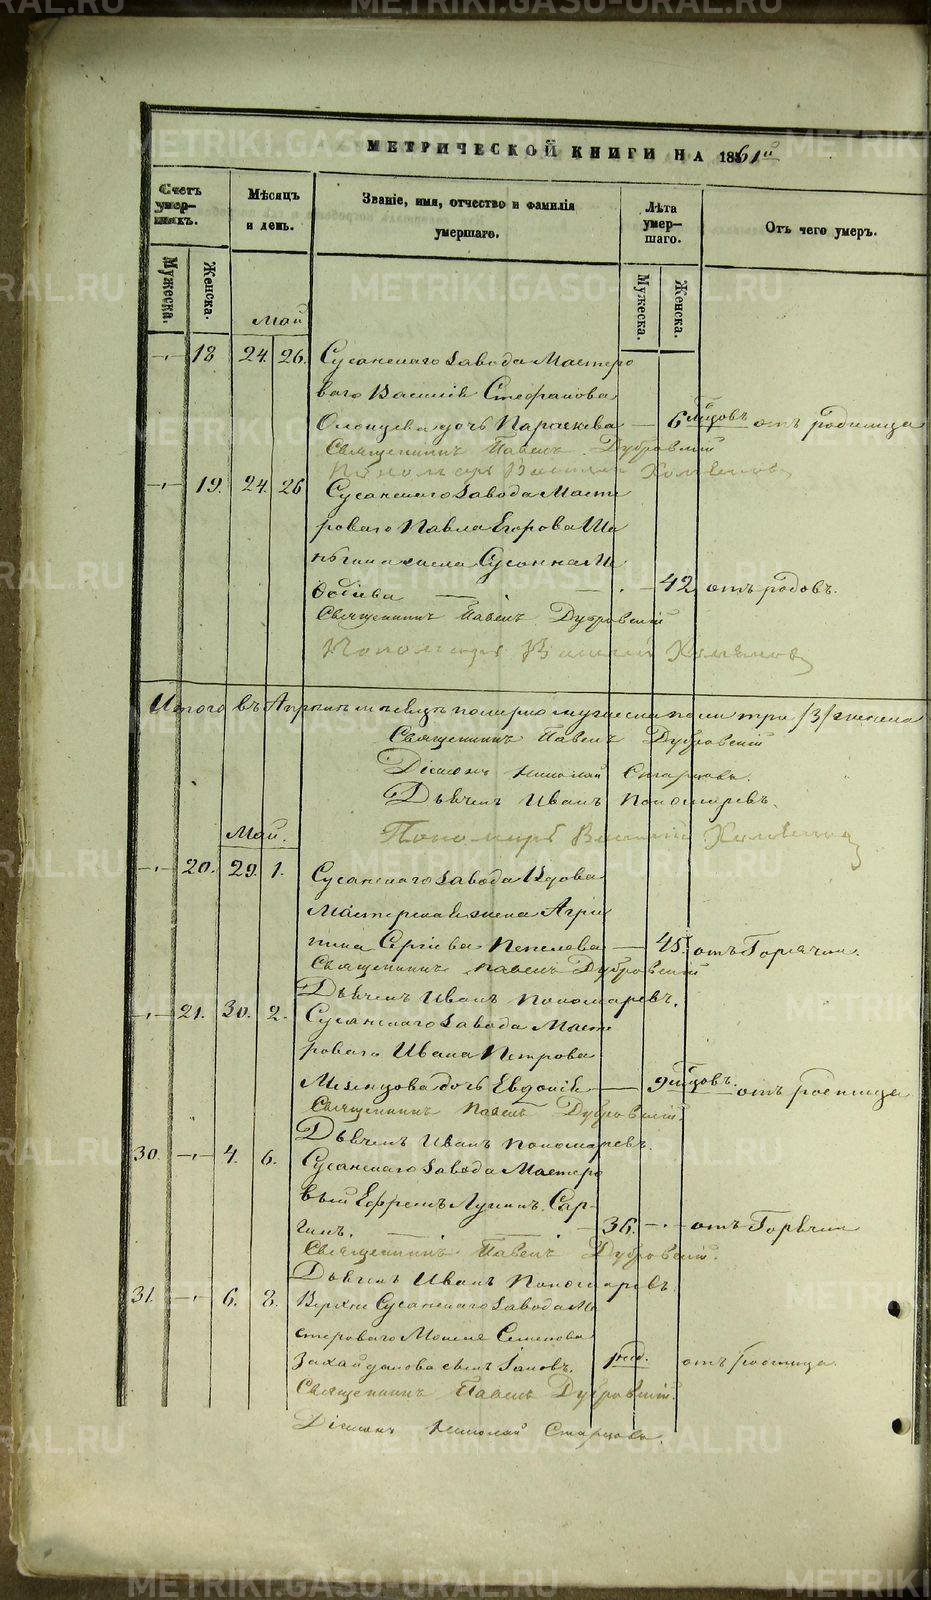 МЕТРИЧЕСКОЙ КНИГИ НА 1861й
Счетъ умершихъ.
Мѣсяцъ и день.
Званіе, имя, отчество и фамилія умершаго.
Лѣта умершаго.
Отъ чего умеръ.
Мужеска.
Женска.
Мужеска.
Женска.
Май
18 24 26. Сусанскаго Завода Мастеро
ваго Василія Стефанова
дочь Параскева — 6 мѣсцовъ отъ родимца
Священникъ Павелъ Дубровскій
Пономарь Василій
19. 24. 26 Сусанскаго Завода Масте
роваго Павла Егорова
Сусанна
42 отъ родовъ.
Священникъ Павелъ Дубровскій
Пономарь Василій
Итого въ Апрѣлѣ мѣсяцѣ померло мужеска пола три /3/ женска
Священникъ Павелъ Дубровскій
Діаконъ Николай Старцовъ.
Дьячекъ Иванъ Пономаревъ.
Пономарь Василій
Май.
20. 29. 1. Сусанскаго Завода Вдова
Мастерская жена Агри
пина Сергіева Пепелева — 45. отъ Горячки.
Священникъ Павелъ Дубровскій
Дьячекъ Иванъ Пономаревъ.
21. 30. 2. Сусанскаго Завода Масте
роваго Ивана Петрова
Мезенцова дочь Евдокія — 9 мѣсцовъ. отъ родимца
Священникъ Павелъ Дубровскій
Дьячекъ Иванъ Пономаревъ.
30. 4. 6. Сусанскаго Завода Мастеро
вый Ефремъ Лукинъ Сар-
гинъ. 36. отъ Горячки
Священникъ Павелъ Дубровскій.
Дьячекъ Иванъ Пономаревъ.
31. 6. 8. Верхне Сусанскаго Завода Ма
стероваго Моисея Семенова
Захайданова сынъ Іаковъ. отъ родимца.
Священникъ Павелъ Дубровскій.
Діаконъ Николай Старцовъ.
METRIKI.GASO-URAL.RU